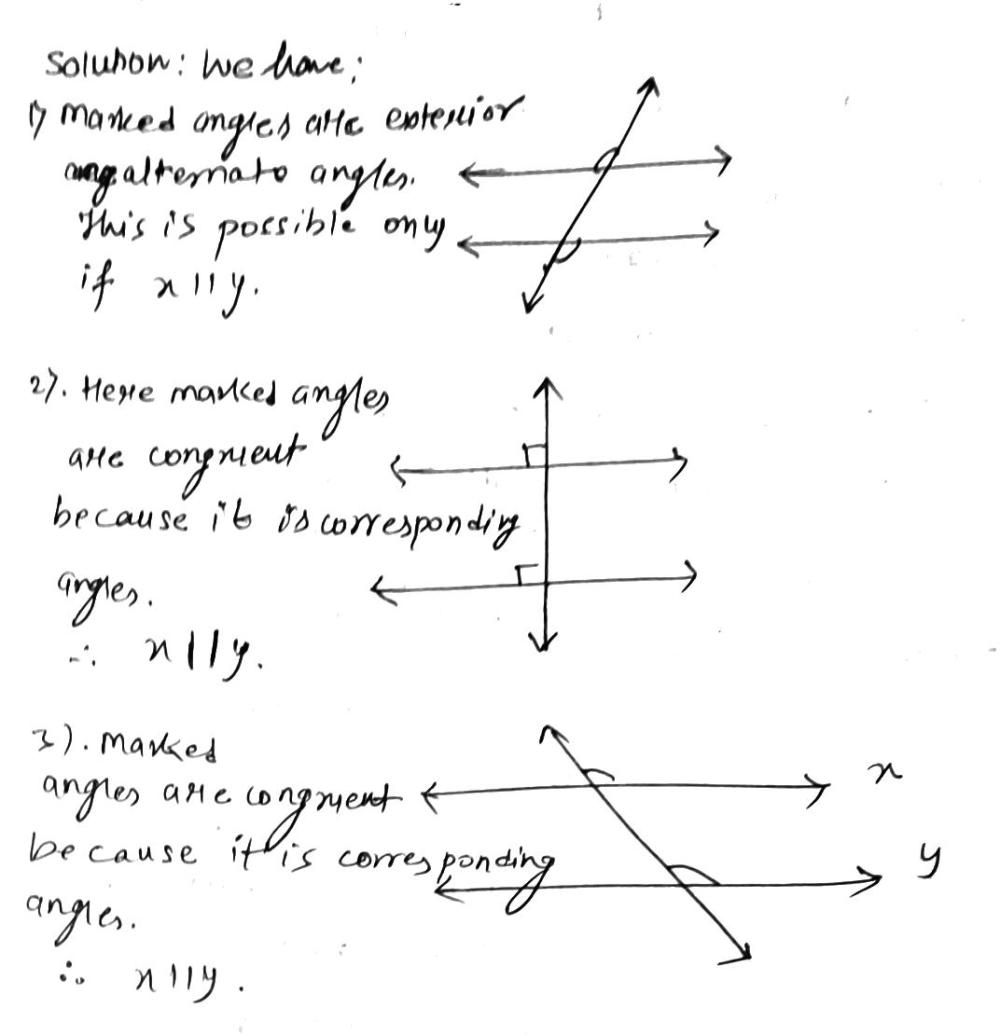 Solution: We have;
1) Marked angles are exterior
alternate angles.
This is possible only
if x || y.
2). Here marked angles
are congruent
because it is corresponding
angles.
∴ x || y.
3). Marked
angles are congruent
x
because it is corresponding
y
angles.
∴ x || y.